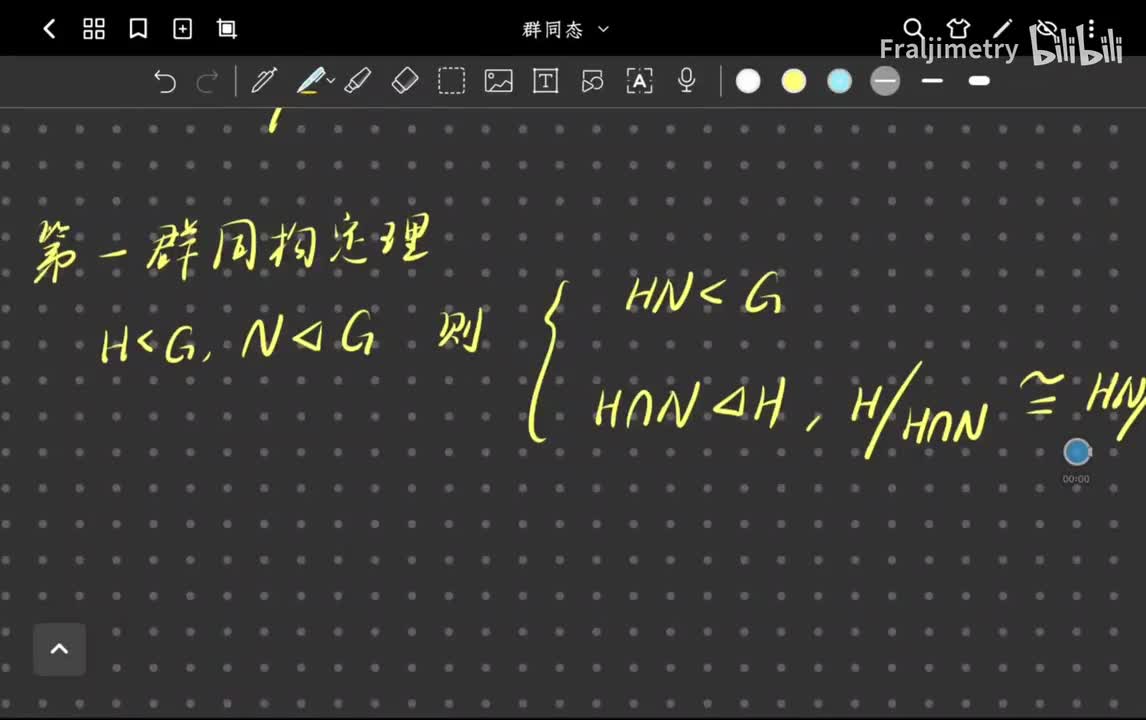 群同态
Fraljimetry bilibili
第一群同构定理
HN < G
H < G, N ⊲ G 则
H∩N ⊲ H, H/H∩N ≅ HN/
00:00